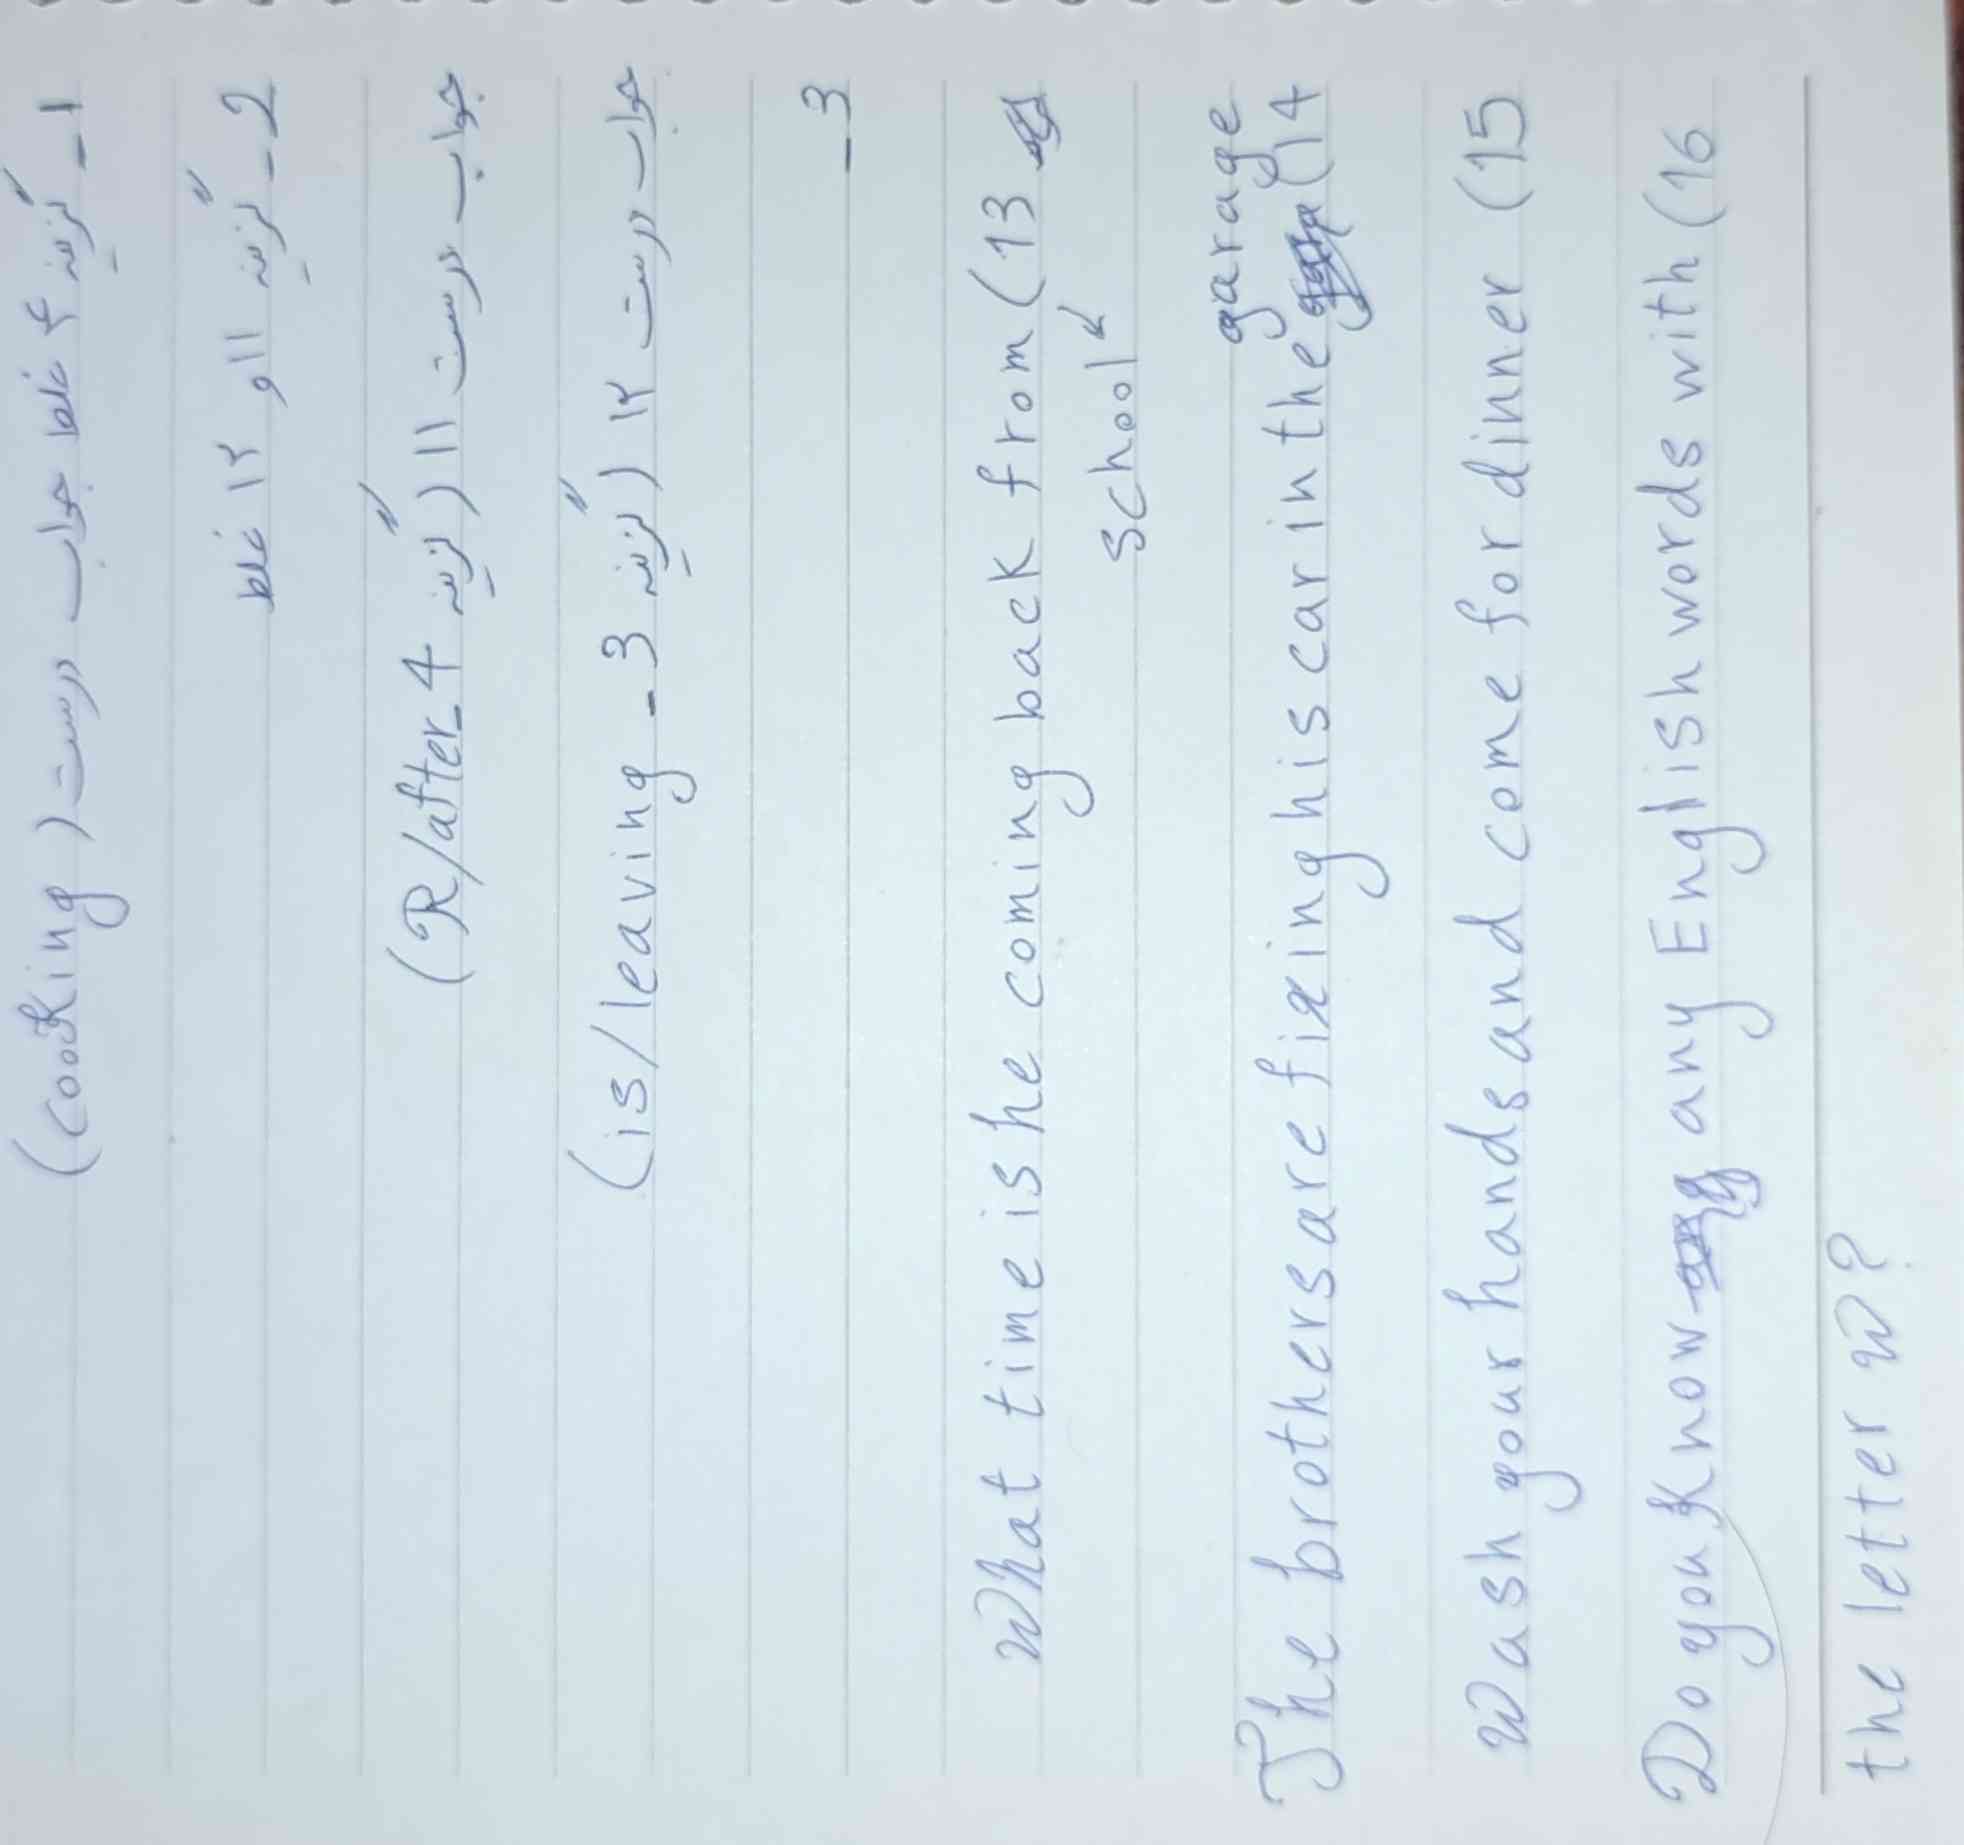 1- گزینه ۴ غلط جواب درست (cooking)
2- گزینه ۱۱ و ۱۲ غلط
جواب درست ۱۱ (گزینه 4_ R/after)
جواب درست ۱۲ (گزینه 3_ is/leaving)
3_
What time is he coming back from (13
school
garage
The brothers are fixing his car in the (14
Wash your hands and come for dinner (15
Do you know any English words with (16
the letter w?